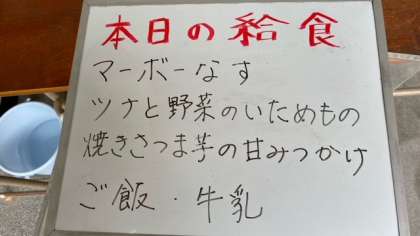 本日の給食
マーボーなす
ツナと野菜のいためもの
焼きさつま芋の甘みつかけ
ご飯・牛乳